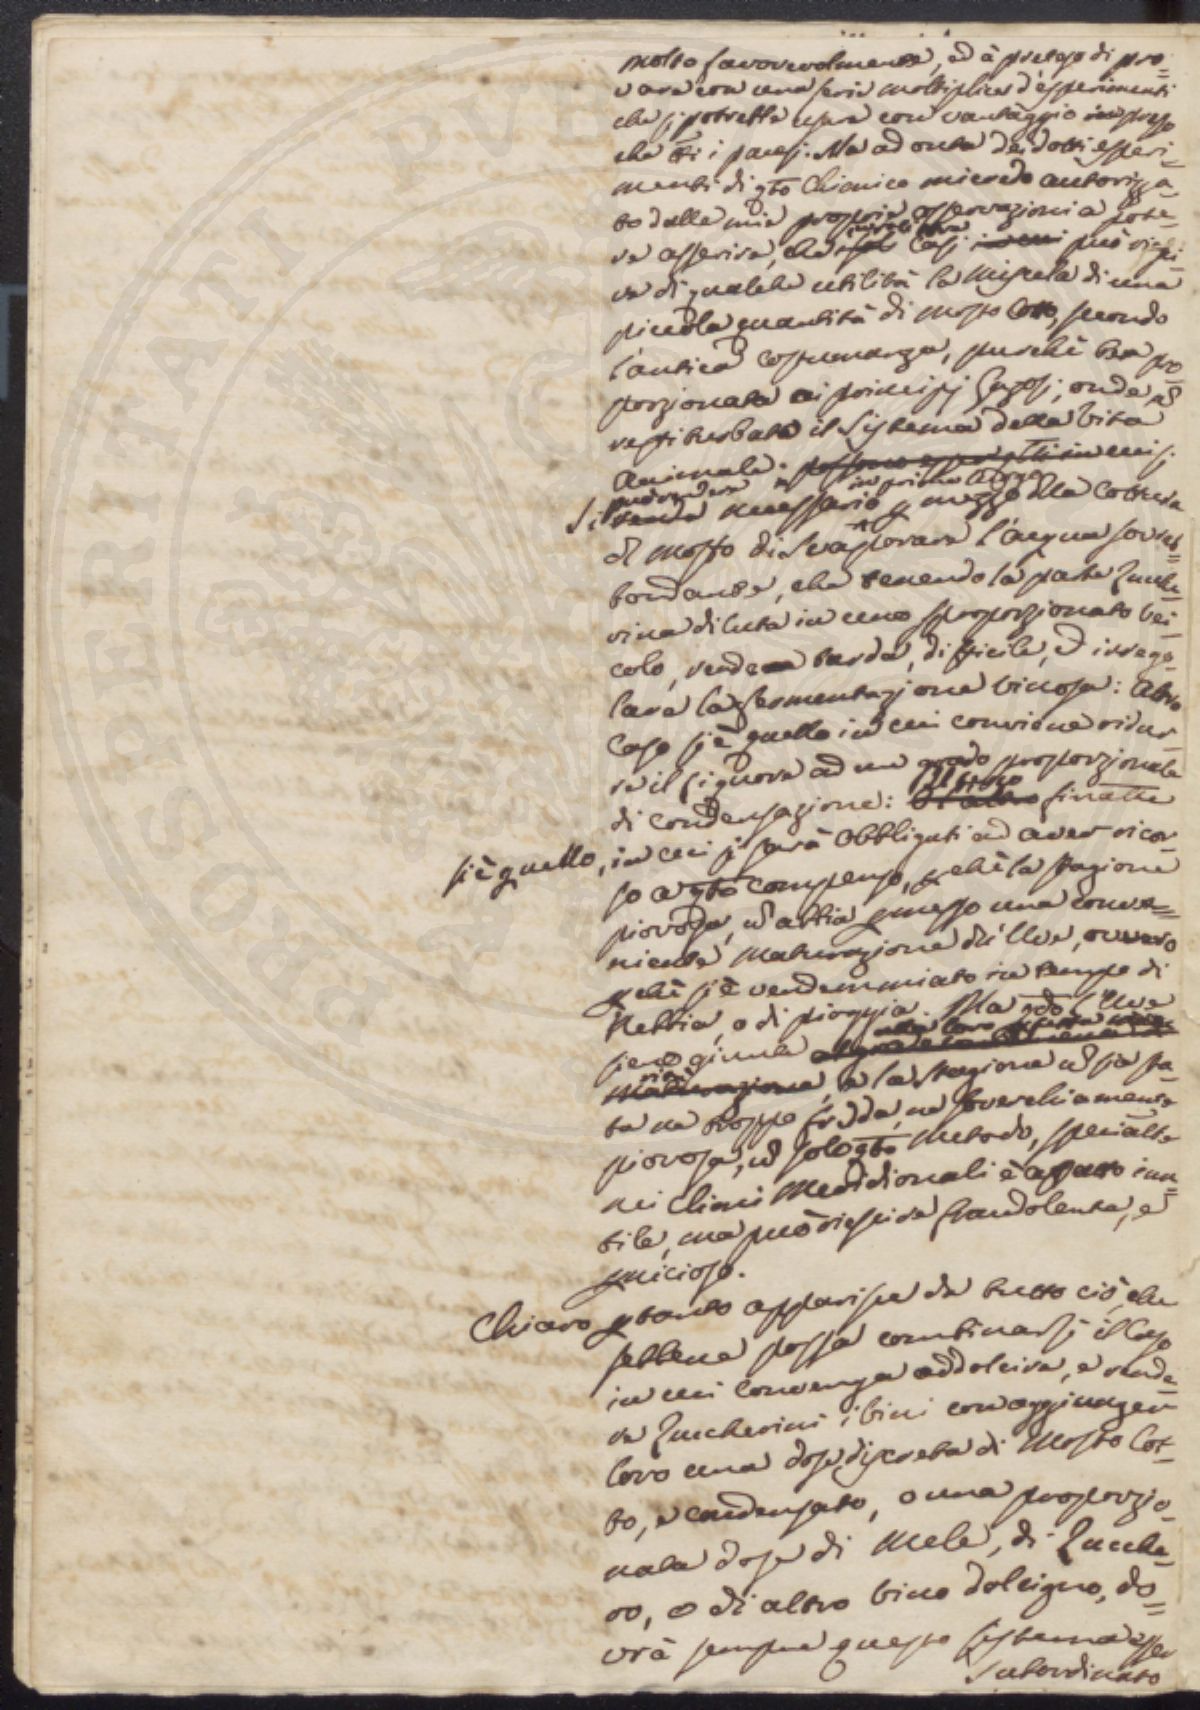 molto favorevolmente, ed à preteso di pro=
vare con una serie moltiplice d'esperimenti
che si potrebbe usare con vantaggio in presso
che tti i paesi. Ma ad onta dei dotti esperi=
menti di qto Chimico mi credo autorizza=
to dalle mie proprie osservazioni a pote=
re asserire, che casi in cui può riesci=
re di qualche utilità la miscela di una
piccola quantità di Mosto Cotto, secondo
l'antica costumanza, purchè sia pro=
porzionata ai principj
il Sistema della Vita
Animale.
Si necessario in primo luogo p mezzo della Cottura
del Mosto di Svaporare l'acqua sovrab=
bondante, che tenendo la parte Zucche=
rina diluta in uno sproporzionato Vei=
colo, rende tarda, difficile, ed irrego=
lare la fermentazione Vinosa: Altro
Caso si è quello in cui conviene ridur=
re il liquore ad un grado proporzionale
di condensazione: Il terzo finalte
si è quello, in cui si sarà Obbligati ad aver ricor=
so a qto compenso, pchè la stagione
piovosa, nō abbia pmesso una conve=
niente Maturazione dell'Uve, ovvero
pchè si è vendemmiato in tempo di
Nebbia, o di pioggia. Ma qdo l'Uve
sieno giunte
Maturazione, e la Stagione nō sia sta=
ta ne troppo fredda, ne soverchiamente
piovosa, nō solo qto Metodo, specialte
nei Climi Meridionali è affatto inu=
tile, ma può riescire fraudolento, e
pnicioso.
Chiaro ptanto apparisce da tutto ciò, che
sebbene possa combinarsi il Caso
in cui Convenga addolcire, e rende=
re Zuccherini i Vini con aggiunger
loro una dose discreta di Mosto Cot=
to, e condensato, o una proporzio=
nata dose di Mele, di Zucche=
ro, o di altro Vino dolcigno, do=
vrà sempre questo sistema esser
Subordinato